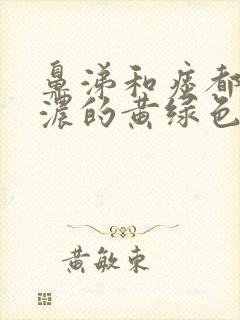 鼻涕和痰都
浓的黄绿色
黄敏东